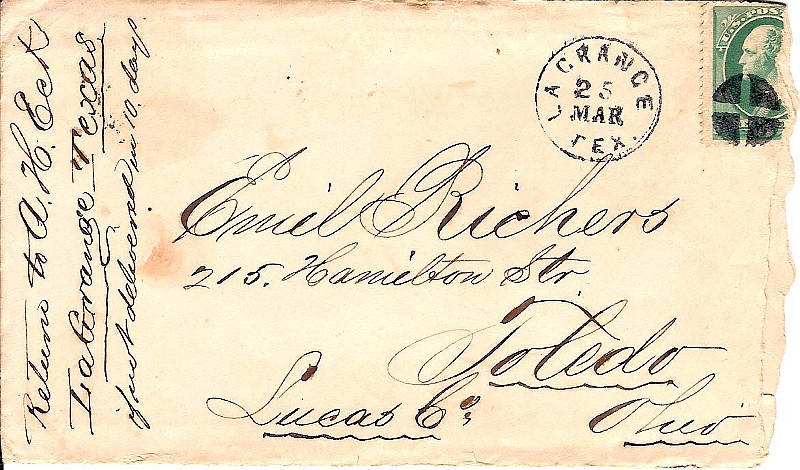 Return to A. H. Eck
LaGrange Texas
if not delivered in 10. days
LA GRANGE
25
MAR
TEX.
U.S. POS
Emil Richers
215. Hamilton Str.
Toledo
Lucas Co.
Ohio